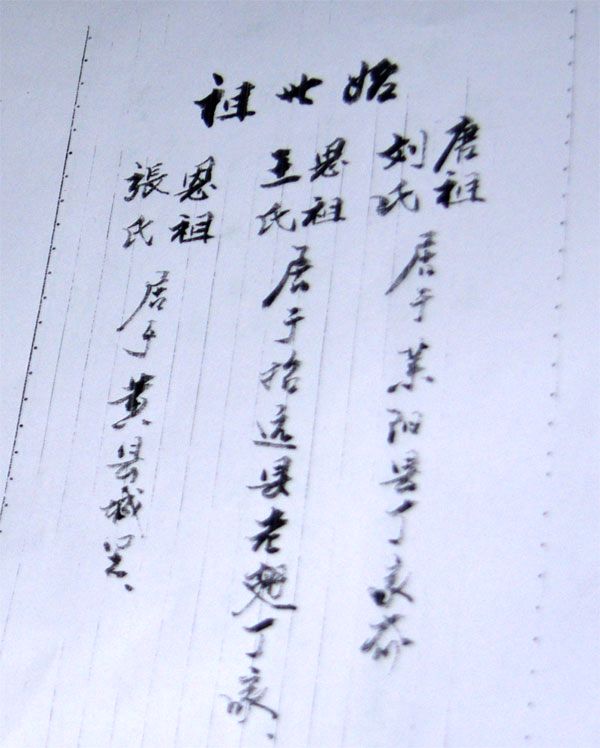 始世祖
唐祖
刘氏
居于莱阳县丁家夼
恩祖
王氏
居于招远县老翅丁家、
恩祖
張氏
居于黄县城里、